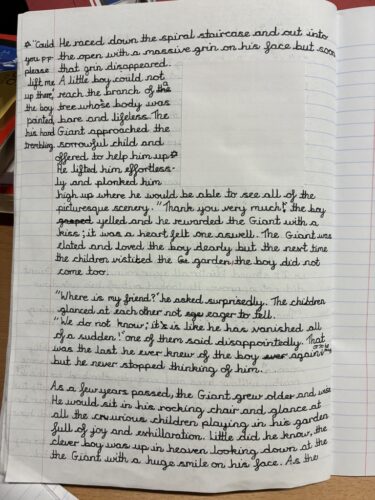 He raced down the spiral staircase and out into
the open with a massive grin on his face but soon
that grin disappeared.
A little boy could not
reach the branch of the
tree whose body was
bare and lifeless. The
Giant approached the
sorrowful child and
offered to help him up
He lifted him effortless-
ly and plonked him
"Could
you pp
please
lift me
up there,"
the boy
pointed,
his hand
trembling.
high up where he would be able to see all of the
picturesque scenery. "Thank you very much!" the boy
gasped yelled and he rewarded the Giant with a
kiss; it was a heart felt one aswell. The Giant was
elated and loved the boy dearly but the next time
the children visitied the garden, the boy did not
come too.
"Where is my friend?" he asked surprisedly. The children
glanced at each other not eager to tell.
"We do not know; it's is like he has vanished all
of a sudden!" one of them said disappointedly. That
was the last he ever knew of the boy ever again
but he never stopped thinking of him.
As a few years passed, the Giant grew older and
He would sit in his rocking chair and glance at
all the curious children playing in his garden
full of joy and exhilaration. Little did he know, the
clever boy was up in heaven looking down at the
the Giant with a huge smile on his face. As the